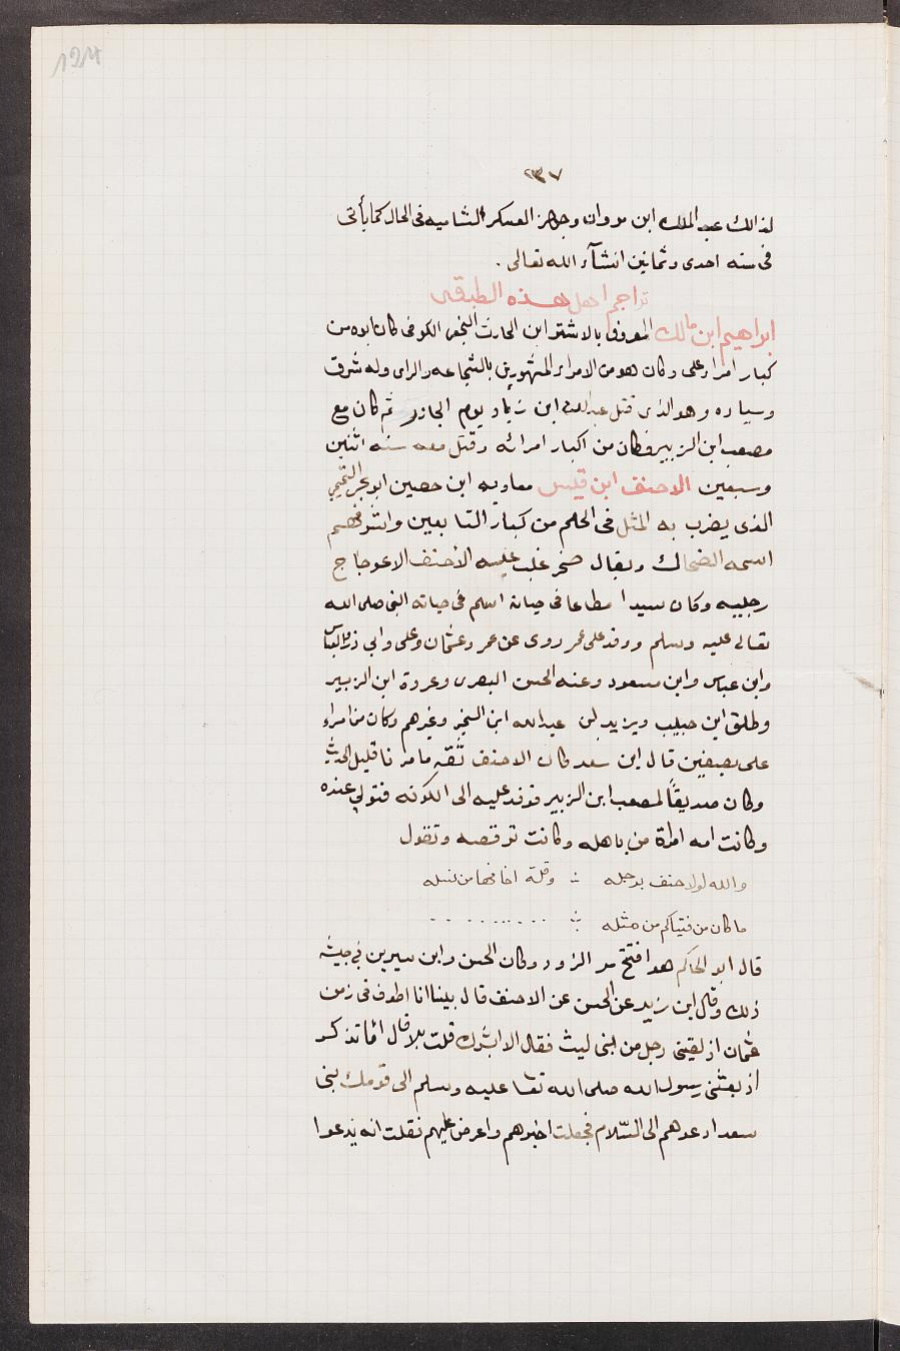 ١٩٧
٢٣٧
لذالك عبد الملك ابن مروان وجهز العسكر الشاميه فى الحال كما يأتى
فى سنه احدى وثمانين انشآء الله تعالى .
تراجم اهل هذه الطبقه
ابراهيم ابن مالك المعروف بالاشتر ابن الحارث النخعى الكوفى كان ابوه من
كبار امراء على وكان هو من الامراء المشهورين بالشجاعه والراى وله شرف
وسياده وهو الذى قتل عبد الله ابن زياد يوم الخازر ثم كان مع
مصعب ابن الزبير فكان من اكبار امرائه وقتل معه سنه اثنين
وسبعين الاحنف ابن قيس معاويه ابن حصين ابو بحر التميمي
الذى يضرب به المثل فى الحلم من كبار التابعين واشرافهم
اسمه الضحاك ويقال صخر غلب عليه الاحنف الاعوجاج
رجليه وكان سيدا مطاعا فى اسلم فى حياته النبى صلى الله
تعالى عليه وسلم ووفد على عمر روى عن عمر وعثمان وعلى وابي ذر والعباس
وابن عباس وابن مسعود وعنه الحسن البصرى وعروة ابن الزبير
وطلق ابن حبيب ويزيد ابن عبد الله ابن الشخير وغيرهم وكان من امراء
على بصفين قال ابن سعد كان الاحنف ثقه مامونا قليل الحديث
وكان صديقًا لمصعب ابن الزبير فوفد عليه الى الكوفه فتولى عنده
وكانت امه امراة من باهله وكانت ترقصه وتقول
والله لولا حنف برجله ؞ وقلة اخافها من نسله
ما كان من فتياكم من مثله ؞ . . . . . . . . .
قال ابو الحاكم هو افتتح مرو الزور وكان الحسن وابن سيرين في جيشه
ذلك وقال ابن زيد عن الحسن عن الاحنف قال بينا انا اطوف فى زمن
عثمان اذ لقينى رجل من بنى ليث فقال الا ابشرك قلت بلا قال اما تذكر
اذ بعثنى رسول الله صلى الله تعا عليه وسلم الى قومك بنى
سعد ادعوهم الى السّلام فجعلت اخبرهم واعرض عليهم فقلت انه يدعوا